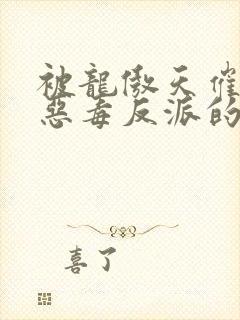 被龍傲天催
惡毒反派的
喜了